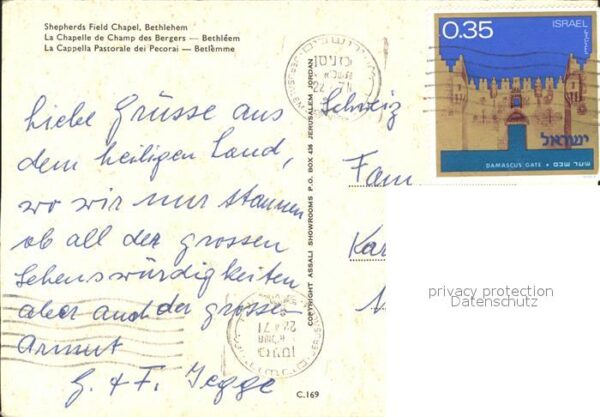 Shepherds Field Chapel, Bethlehem
La Chapelle de Champ des Bergers — Bethléem
La Cappella Pastorale dei Pecorai — Betlemme
Liebe Grüsse aus
dem heiligen Land,
wo wir nur staunen
ob all der grossen
Sehenswürdigkeiten
aber auch der grossen
Armut
G. + F. Jegge
COPYRIGHT ASSALI SHOWROOMS P.O. BOX 436 JERUSALEM JORDAN
C.169
0.35
ISRAEL
ישראל
DAMASCUS GATE • שער שכם
Schweiz
Fam
Kar
privacy protection
Datenschutz
22 4 71